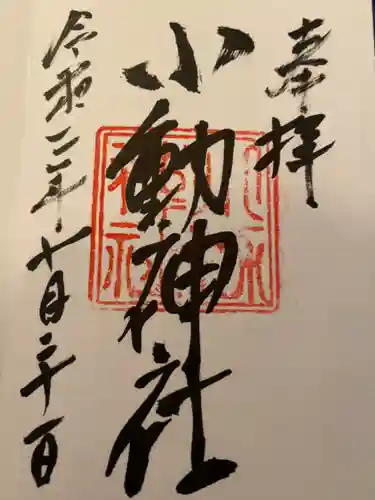 奉拝
小動神社
令和二年十月三十一日